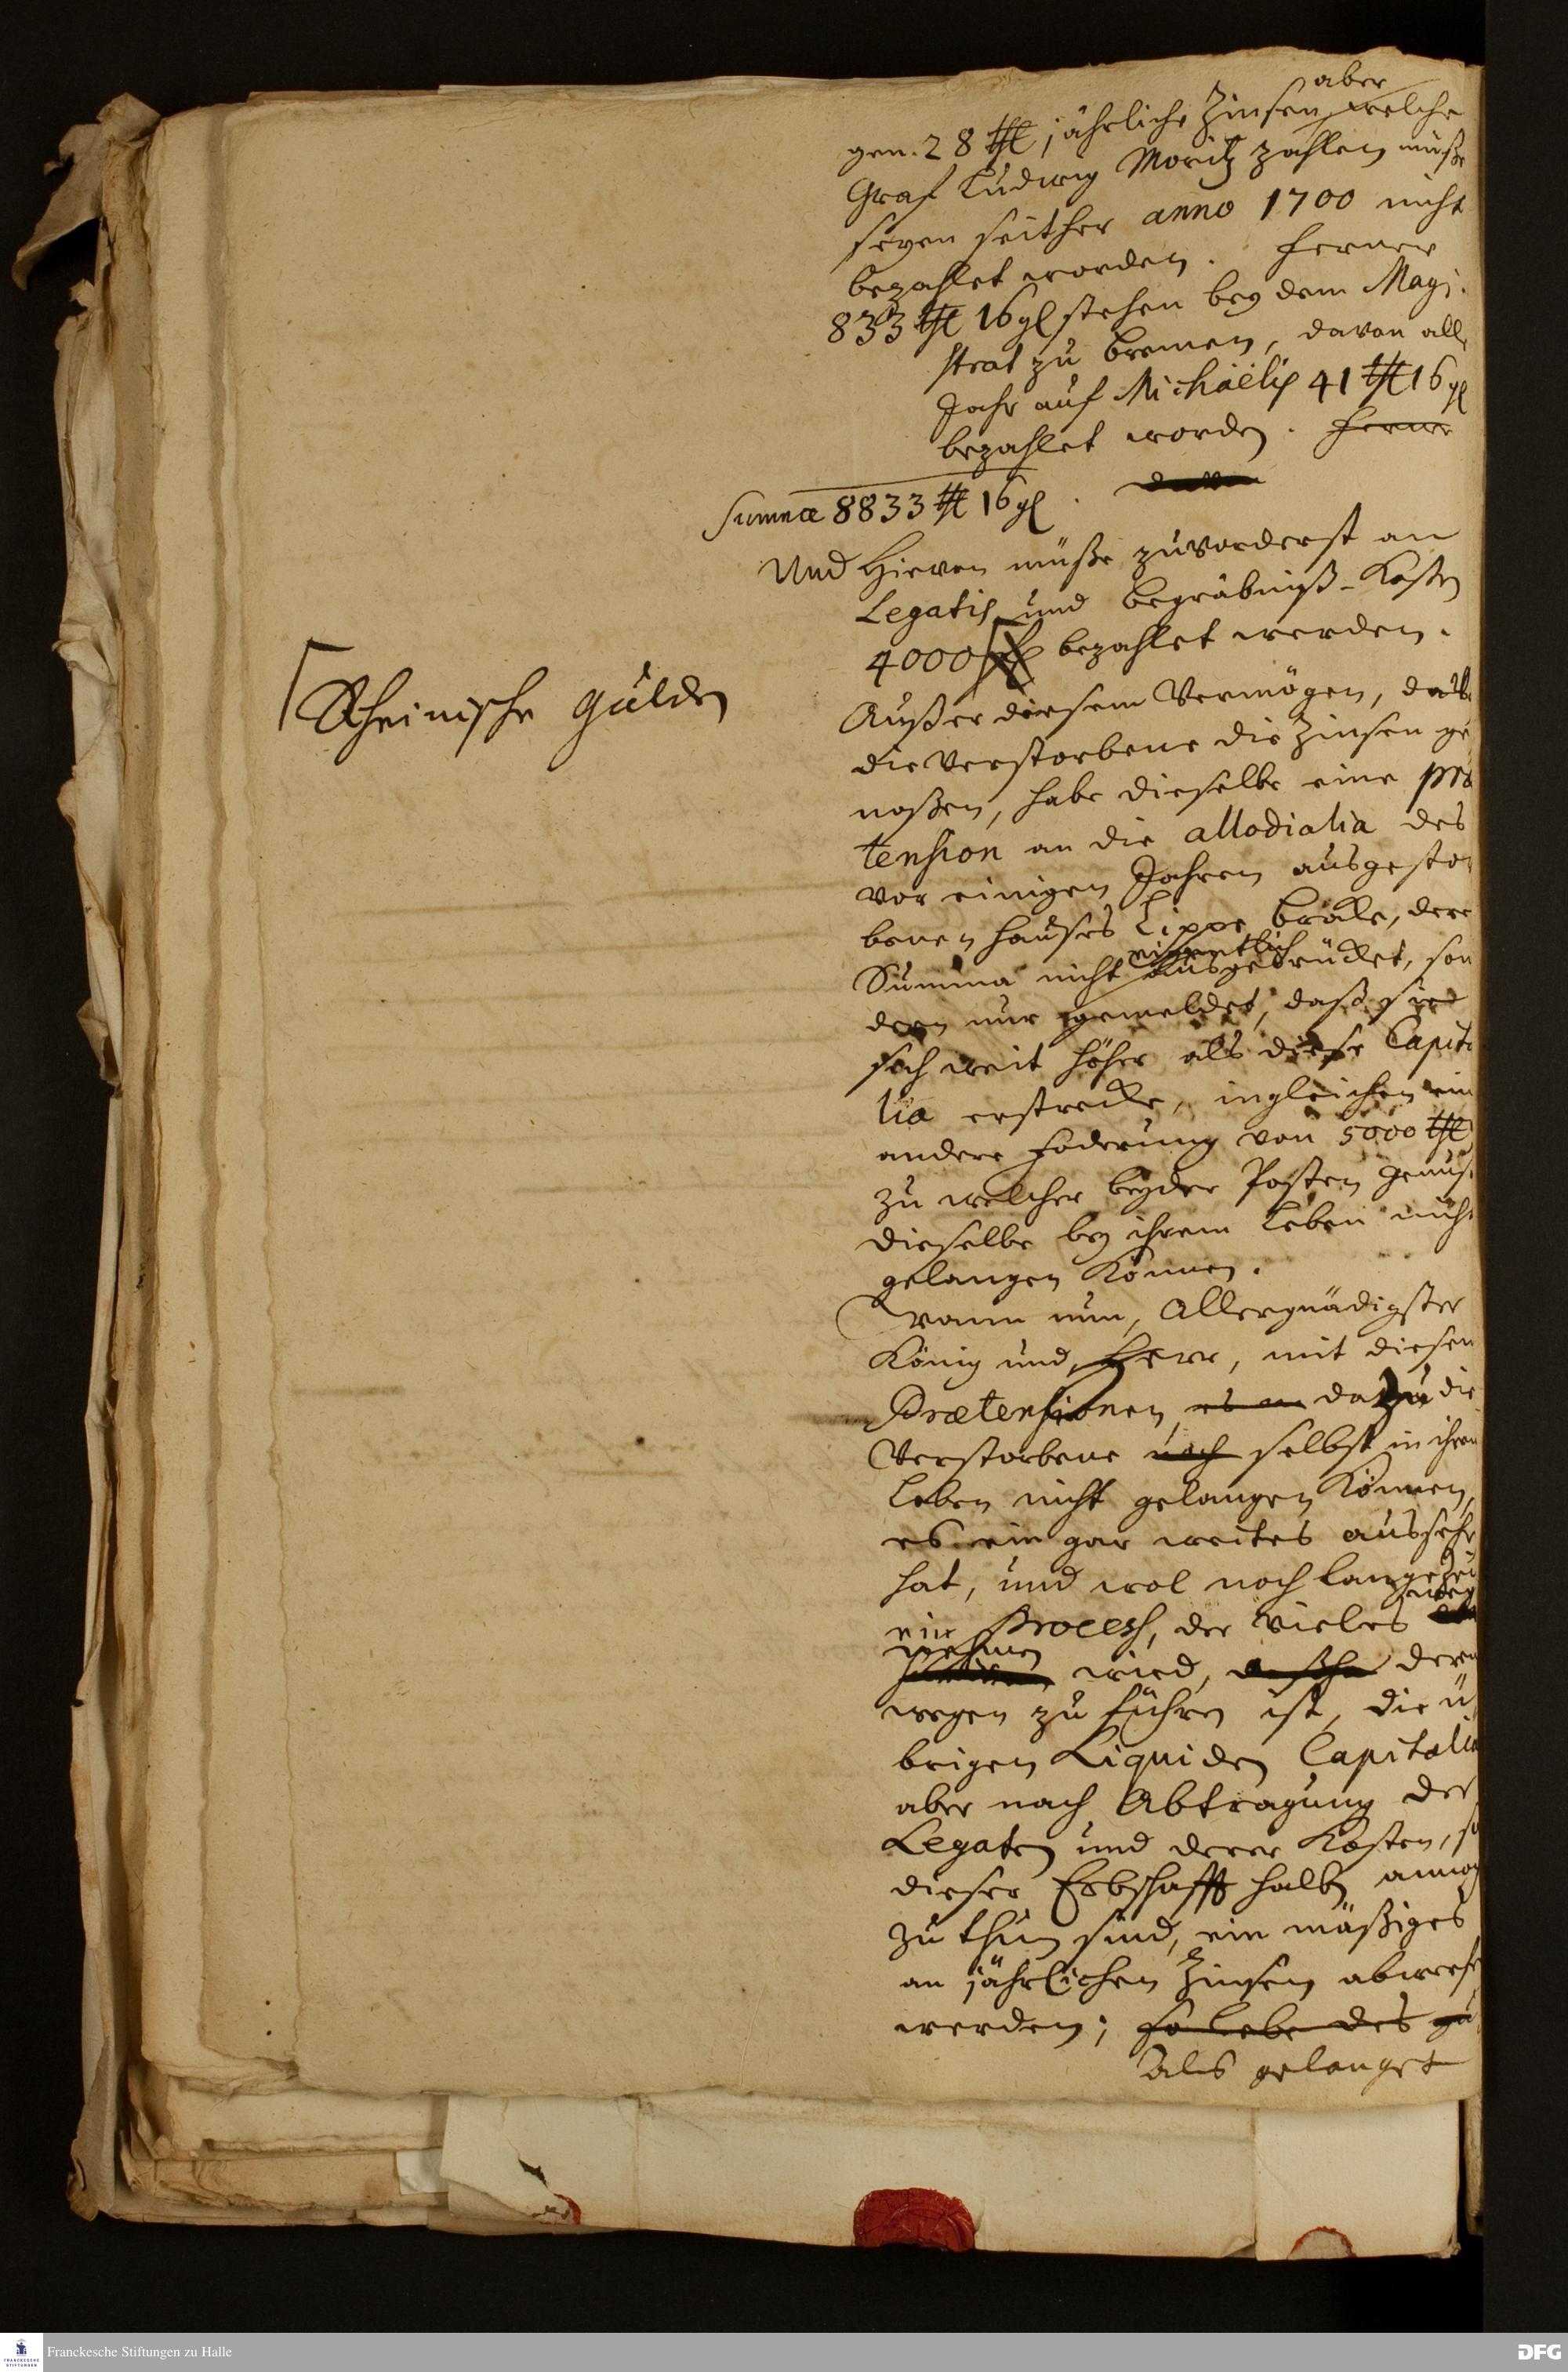 aber
gen. 28 thl jährliche Zinsen welche
Graf Ludwig Moritz zahlen müße
seyen seither anno 1700 nicht
bezahlet worden. Ferner
833 thl 16 gl stehen bey dem Magi-
strat zu Bremen, davon alle
Jahr auf Michaëlis 41 thl 16 gl
bezahlet worden. Ferner
Summa 8833 thl 16 gl.
Und hievon müße zuvorderst an
Legatis und Begräbniß-Kosten
4000 bezahlet werden.
Rheinische Gülden
Außer diesem Vermögen,
die Verstorbene die Zinsen ge
noßen, habe dieselbe eine præ
tension an die allodialia des
vor einigen Jahren ausgestor
benen Hauses Lippe Brake, dere
eigentlich
Summa nicht ausgedrücket, son
dern nur gemeldet, daß sie
sich weit höher als diese Capita
lia erstrecke, ingleichen ein
andere Foderung von 5000 thl
zu welcher beyder Posten Genuß
dieselbe bey ihrem Leben nicht
gelangen können.
Wann nun, Allergnädigster
König und Herr, mit diesen
Prætensionen, dazu die
Verstorbene noch selbst in ihrem
Leben nicht gelangen können,
es ein gar weites aussehen
hat, und wol noch lange Zeit
ein Process, der vieles
nehmen wird, deren
wegen zu führen ist, die ü
brigen Liquiden Capitalia
aber nach Abtragung der
Legaten und derer Kosten, so
dieser Erbschafft halben annoch
zu thun sind, ein mäßiges
an jährlichen Zinsen abwerfen
werden; so lebe des zu
Als gelanget
Franckesche Stiftungen zu Halle
DFG